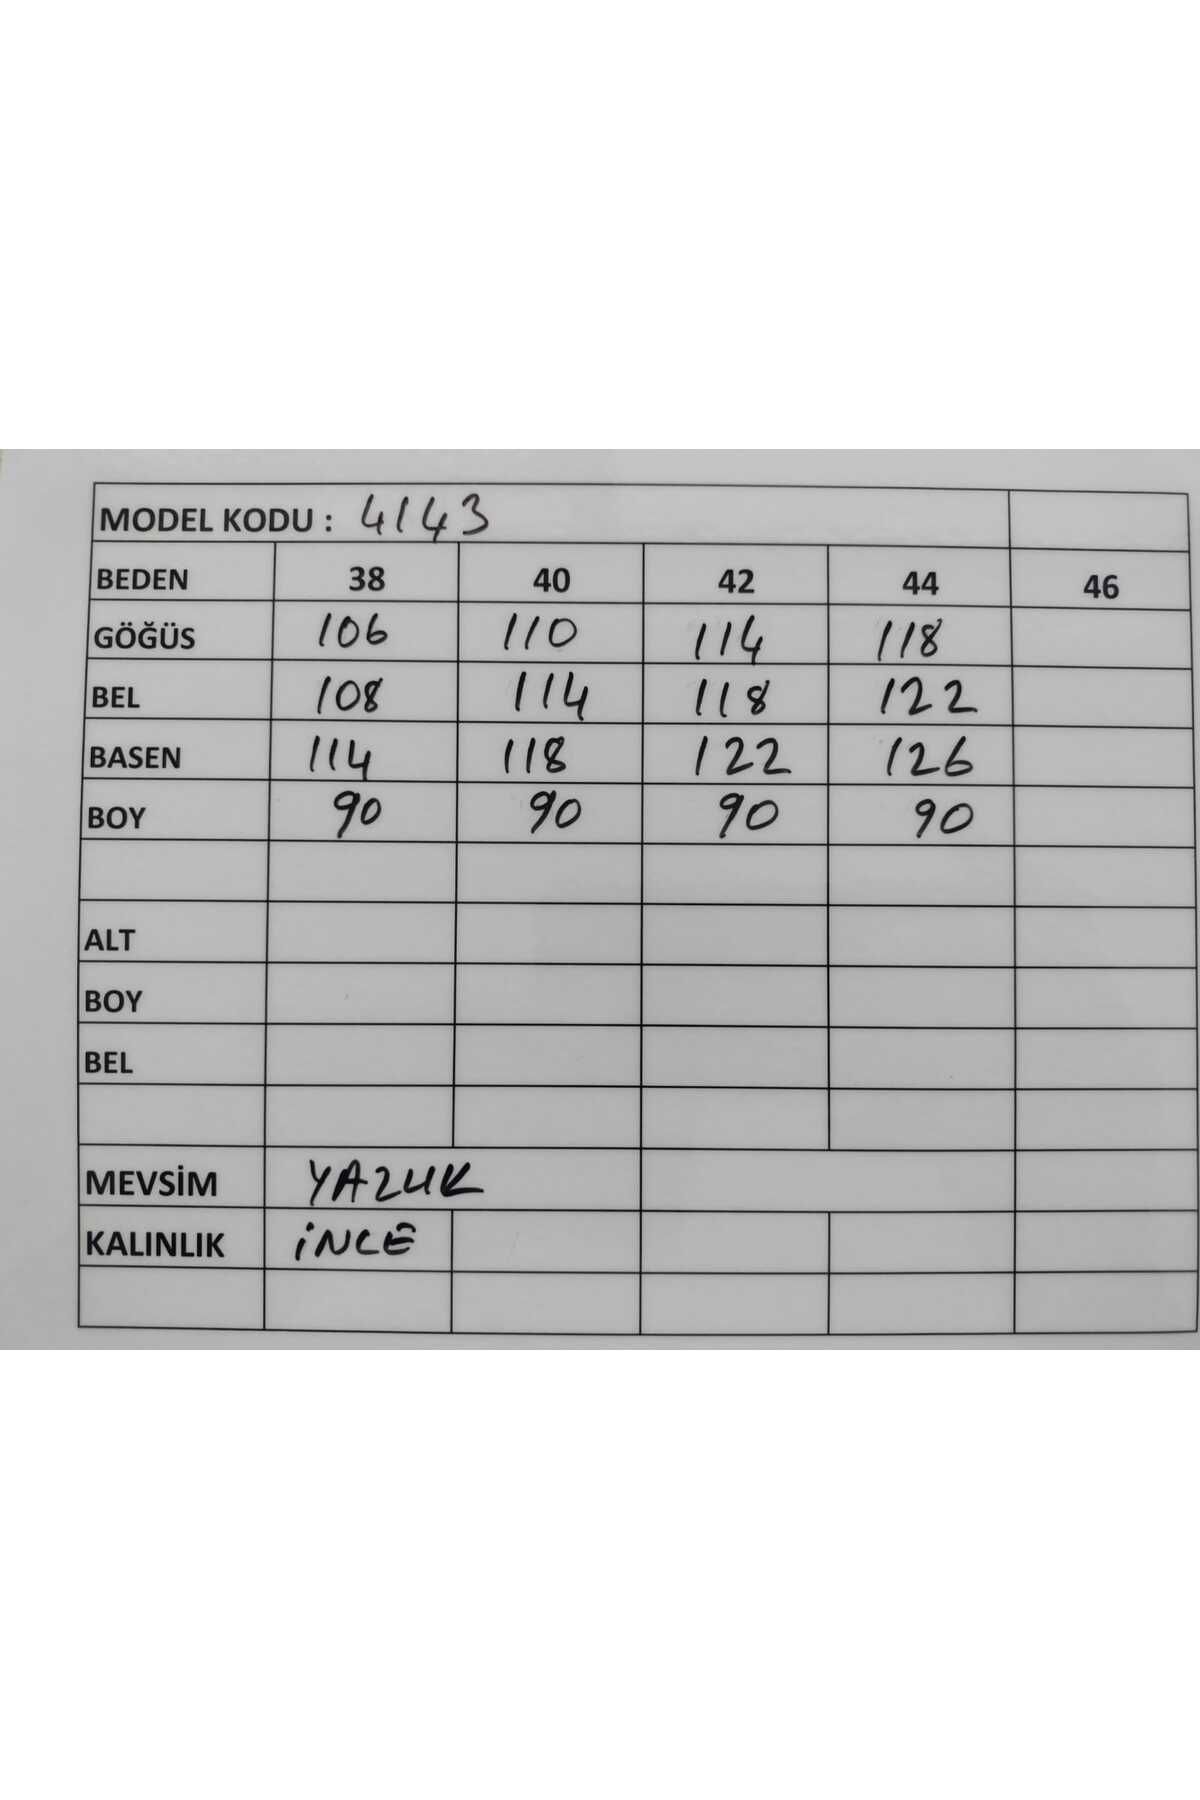 MODEL KODU : 4143
BEDEN 38 40 42 44 46
GÖĞÜS 106 110 114 118
BEL 108 114 118 122
BASEN 114 118 122 126
BOY 90 90 90 90
ALT
BOY
BEL
MEVSİM YAZLIK
KALINLIK İNCE